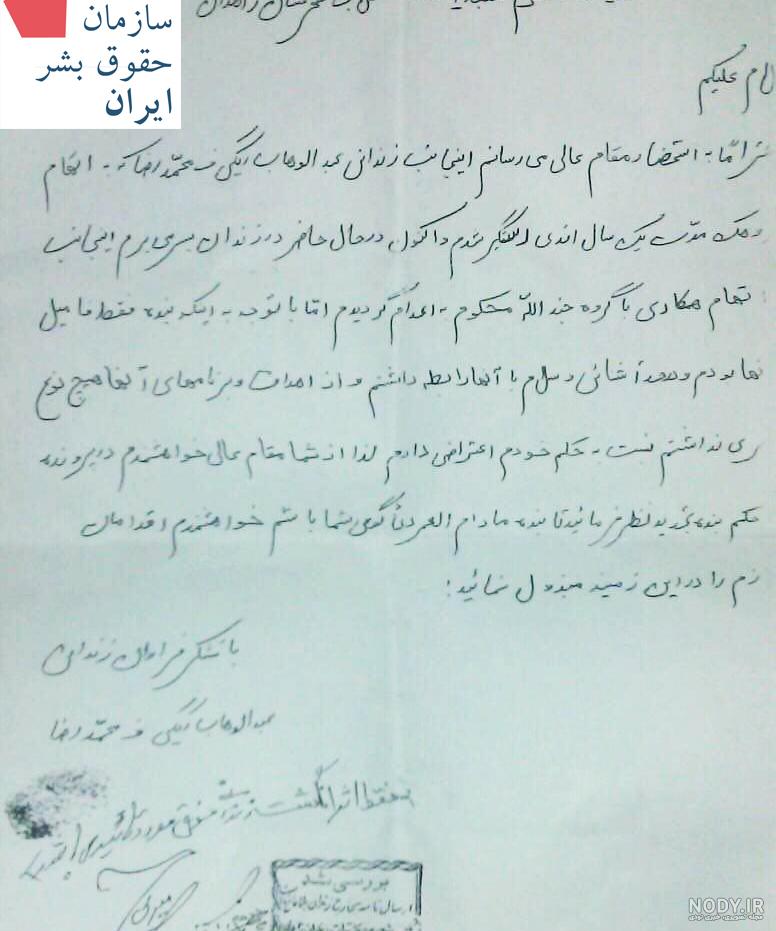 سازمان
حقوق بشر
ایران
علیکم
به استحضار مقام عالی می رسانم اینجانب زندانی عبدالوهاب ریگی ف محمدرضا که به اتهام
مدت یک سال اندی دستگیر شدم و اکنون درحال حاضر در زندان بسر می برم اینجانب
همکاری با گروه جندالله محکوم به اعدام گردیدم اما با توجه به اینکه بنده فقط فامیل
بودم و در حد آشنائی و سلام با آنها رابطه داشتم و از اهداف و برنامه‌های آنها هیچ نوع
نداشتم نسبت به حکم خودم اعتراض دارم لذا از شما مقام عالی خواهشمندم در پرونده
حکم بنده تجدید نظر فرمائید تا بنده مادام العمر دعاگوی شما باشم خواهشمندم اقدامات
را در این زمینه مبذول نمائید:
با تشکر فراوان زندانی
عبدالوهاب ریگی ف محمدرضا
فقط اثر انگشت زندانی فوق مورد تائید
بررسی شد
NODY.IR